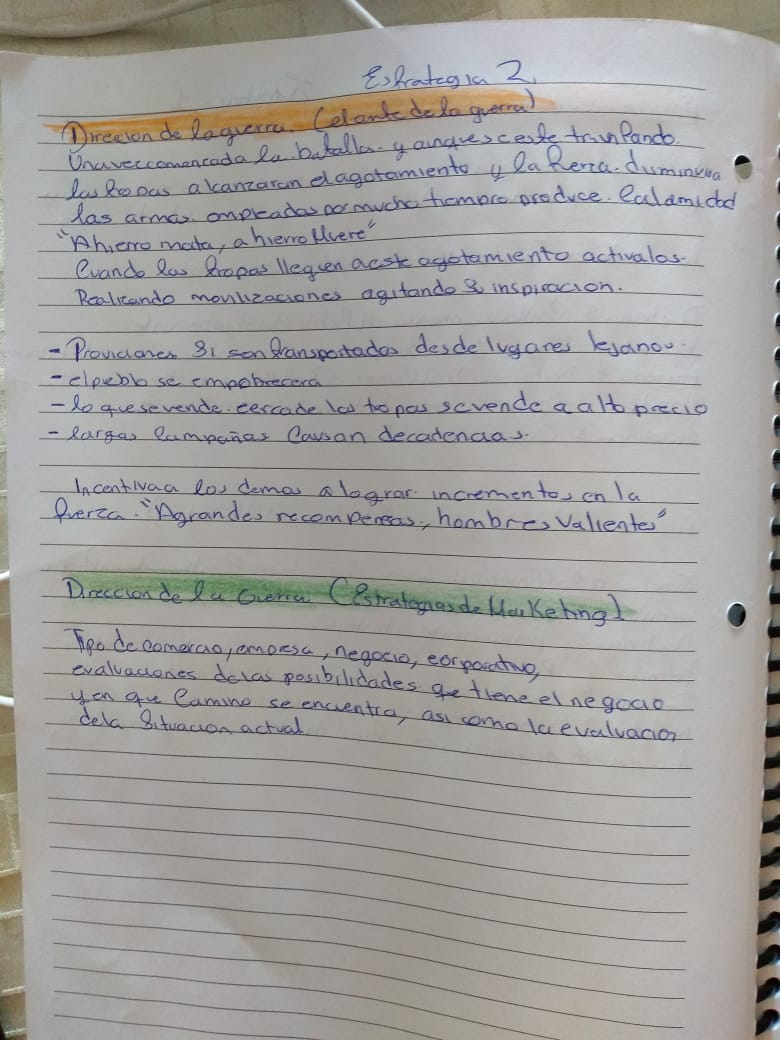 Estrategia 2
Direccion de la guerra. (el ante de la guerra)
Una vez comencada la batalla. y aunque se este triunfando.
las tropas alcanzaran el agotamiento y la fuerza. disminuira
las armas empleadas por mucho tiempo produce. Calamidad
"A hierro mata, a hierro Muere"
Cuando las tropas lleguen a este agotamiento activalos.
Realizando movilizaciones agitando su inspiracion.
- Proviciones si son transportados desde lugares lejanos.
- el pueblo se empobrecera
- lo que se vende. cerca de las tropas se vende a alto precio
- largas campañas causan decadencias.
Incentiva a los demas a lograr incrementos en la
fuerza. "A grandes recompensas, hombres valientes"
Direccion de la Guerra (Estrategias de Marketing)
Tipo de comercio, empresa, negocio, corporativo,
evaluaciones de las posibilidades que tiene el negocio
y en que camino se encuentra, asi como la evaluacion
de la situacion actual.